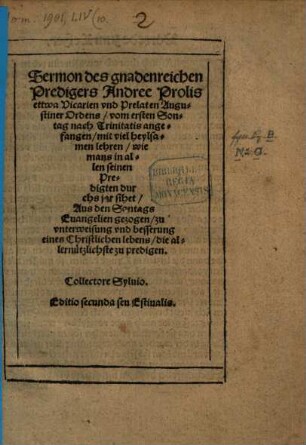 Hom. 1901, LIV (10.
2
Sermon des gnadenreichen
Predigers Andree Prolis
ettwa Vicarien vnd Prelaten Augu-
stiner Ordens / vom ersten Son-
tag nach Trinitatis ange-
fangen / mit viel heylsa-
men lehren / wie
mans in al-
len seinen
Pre-
digten dur
chs jar sihet /
Aus den Sontags
Euangelien gezogen / zu
vnterweisung vnd besserung
eines Christlichen lebens / die al-
lernützlichste zu predigen.
Collectore Syluio.
Editio secunda seu Estiualis.